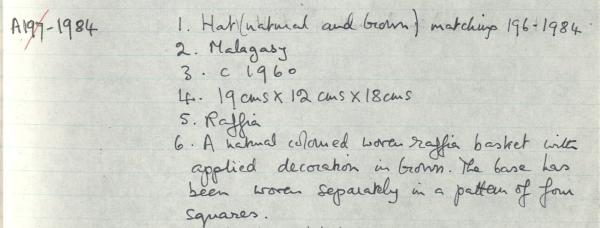 A197-1984
1. Hat (natural and brown) matching 196-1984
2. Malagasy
3. c 1960
4. 19 cms x 12 cms x 18cms
5. Raffia
6. A natural coloured woven raffia basket with
applied decoration in brown. The base has
been woven separately in a pattern of four
squares.